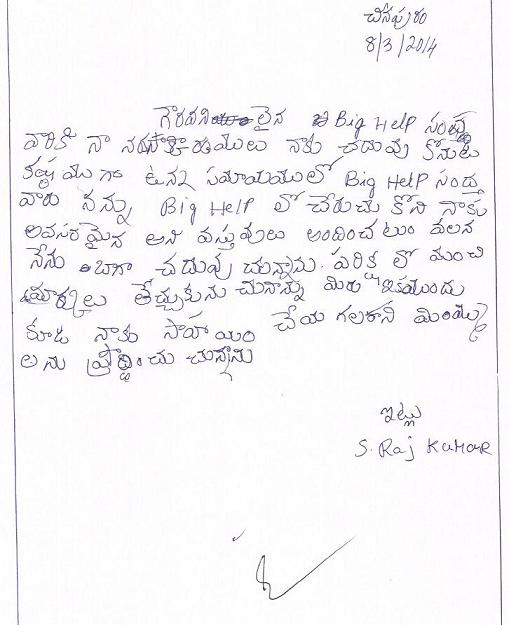 చినపురం
8/3/2014
గౌరవనియులైన Big Help సంస్థ
వారికి నా నమస్కారములు నాకు చదువు కోనుట
కష్టముగా ఉన్న సమాయములో Big Help సంస్థ
వారు నన్ను Big HELP లో చేరుచు కొని నాకు
అవసరమైన అని వస్తువులు అందించటం వలన
నేను బాగా చదువు చున్నాను. పరిక్ష లో మంచి
మార్కులు తేచ్చుకును చునాన్ను మిరు ఇకముందు
కూడ నాకు సాహాయం చేయ గలరాని మిమ్ము
లను ప్రార్ధించు చున్నాను
ఇట్లు
S. Raj Kumar